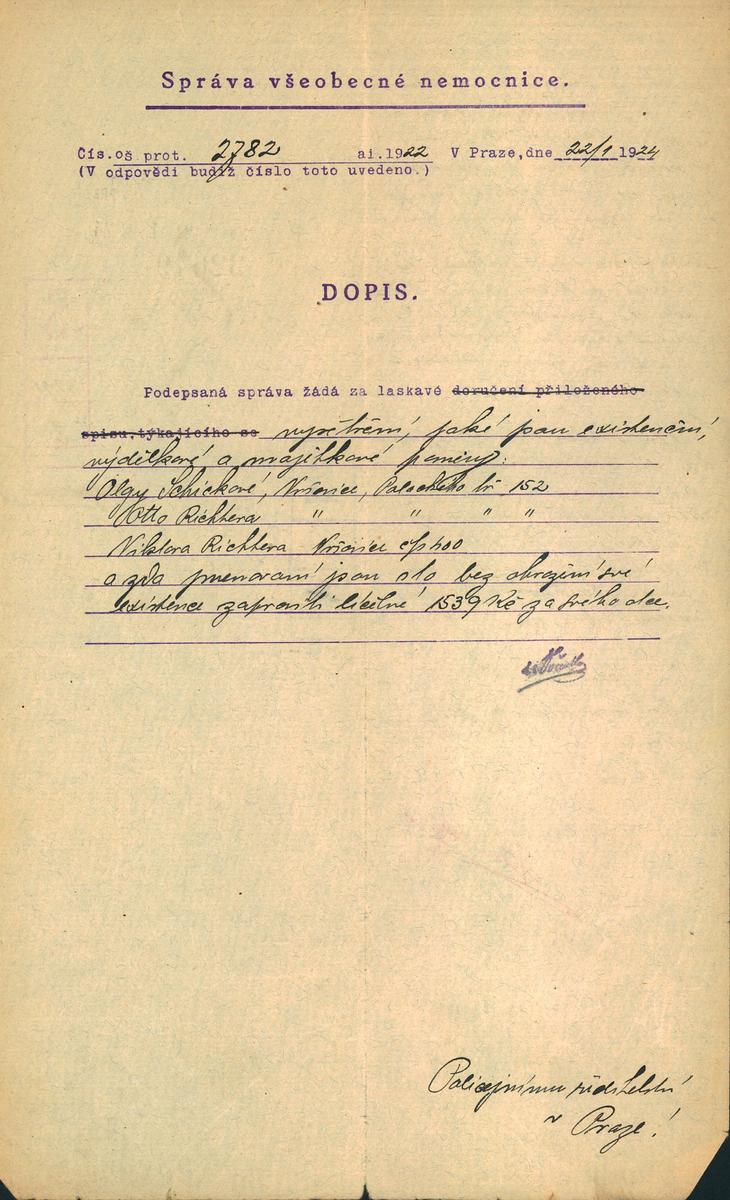 Správa všeobecné nemocnice.
Čís.oš prot. 2782 ai.1922 V Praze,dne 22/1 1924
(V odpovědi budiž číslo toto uvedeno.)
DOPIS.
Podepsaná správa žádá za laskavé doručení přiloženého
spisu,týkajícího se vyšetření, jaké jsou existenční,
výdělkové a majetkové poměry:
Olgy Schickové, Vršovice, Palackého tř 152
Otto Richtera " " " "
Viktora Richtera Vršovice čp 400
a zda jmenovaní jsou sto bez ohrožení své
existence zapraviti léčebné 1539 Kč za svého otce.
Policejnímu ředitelství
v Praze!